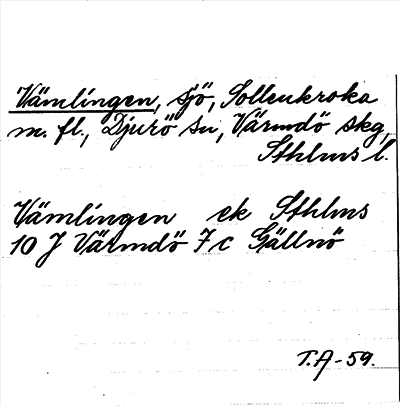 Vämlingen, sjö, Sollenkroka
m. fl., Djurö sn, Värmdö skg,
Sthlms l.
Vämlingen ek Sthlms
10 J Värmdö 7c Gällnö
T.A-59.